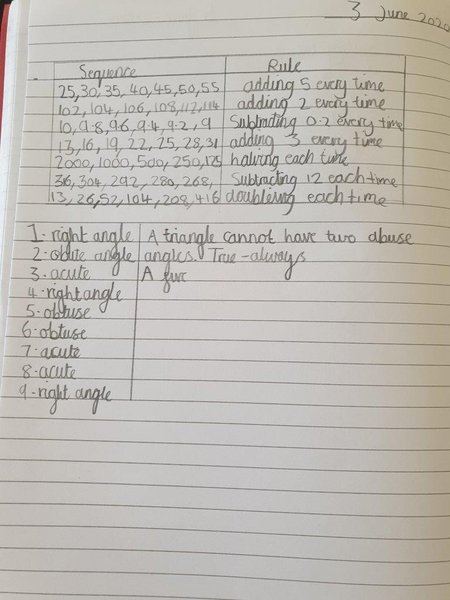 3 June 2020
Sequence Rule
25,30,35,40,45,50,55 adding 5 every time
102,104,106,108,112,114 adding 2 every time
10,9.8,9.6,9.4,9.2,9 Subtrading 0.2 every time
13,16,19,22,25,28,31 adding 3 every time
2000,1000,500,250,125 halving each time
316,304,292,280,268, Subtracting 12 each time
13,26,52,104,208,416 doubleing each time
1- right angle A triangle cannot have two abuse
2- obtite angle angles. True - always
3. acute A
4- right angle
5- obtuse
6- obtuse
7- acute
8- acute
9- right angle